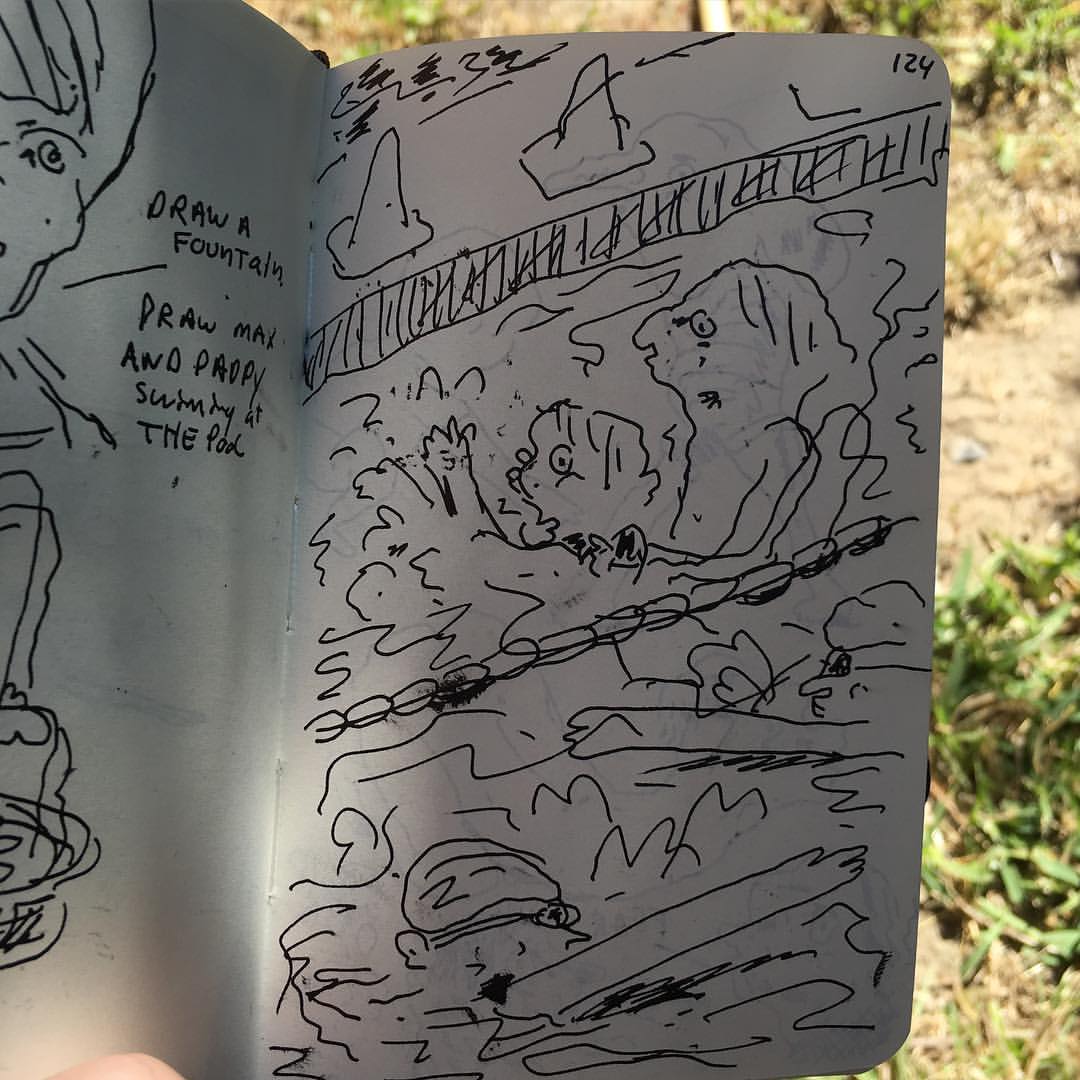 DRAW A
FOUNTAIN
DRAW MAX
AND PADPY
Swiming at
THE Pool
124